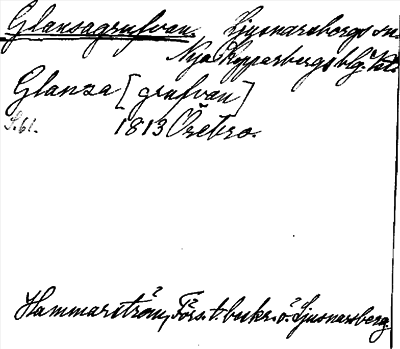 Glansagrufvan. Ljusnarsbergs sn.
Nya Kopparbergs blg.
Glansa [grufvan]
S.61. 1813 Örebro.
Hammarström, Förs. t. beskr. ö. Ljusnarsberg